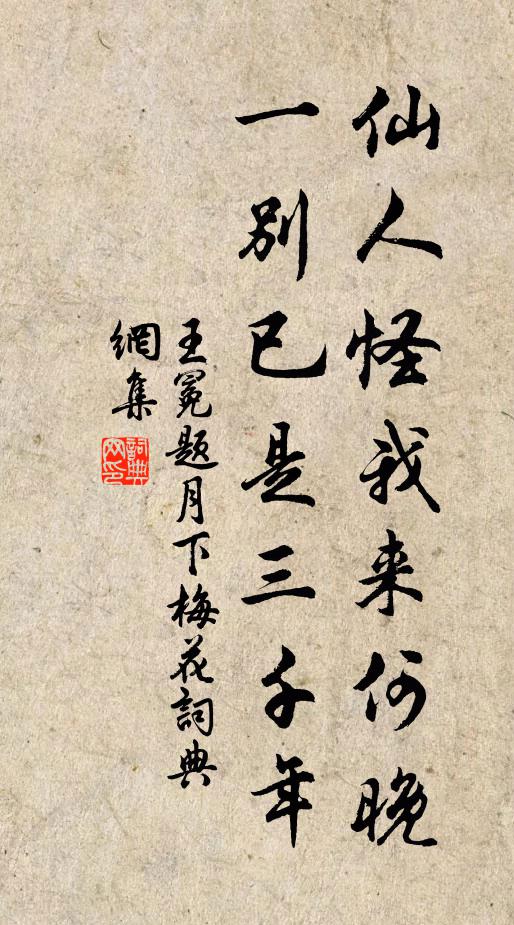 仙人怪我来何晚
一别已是三千年
王冕题月下梅花詞典
網集
詞典网印